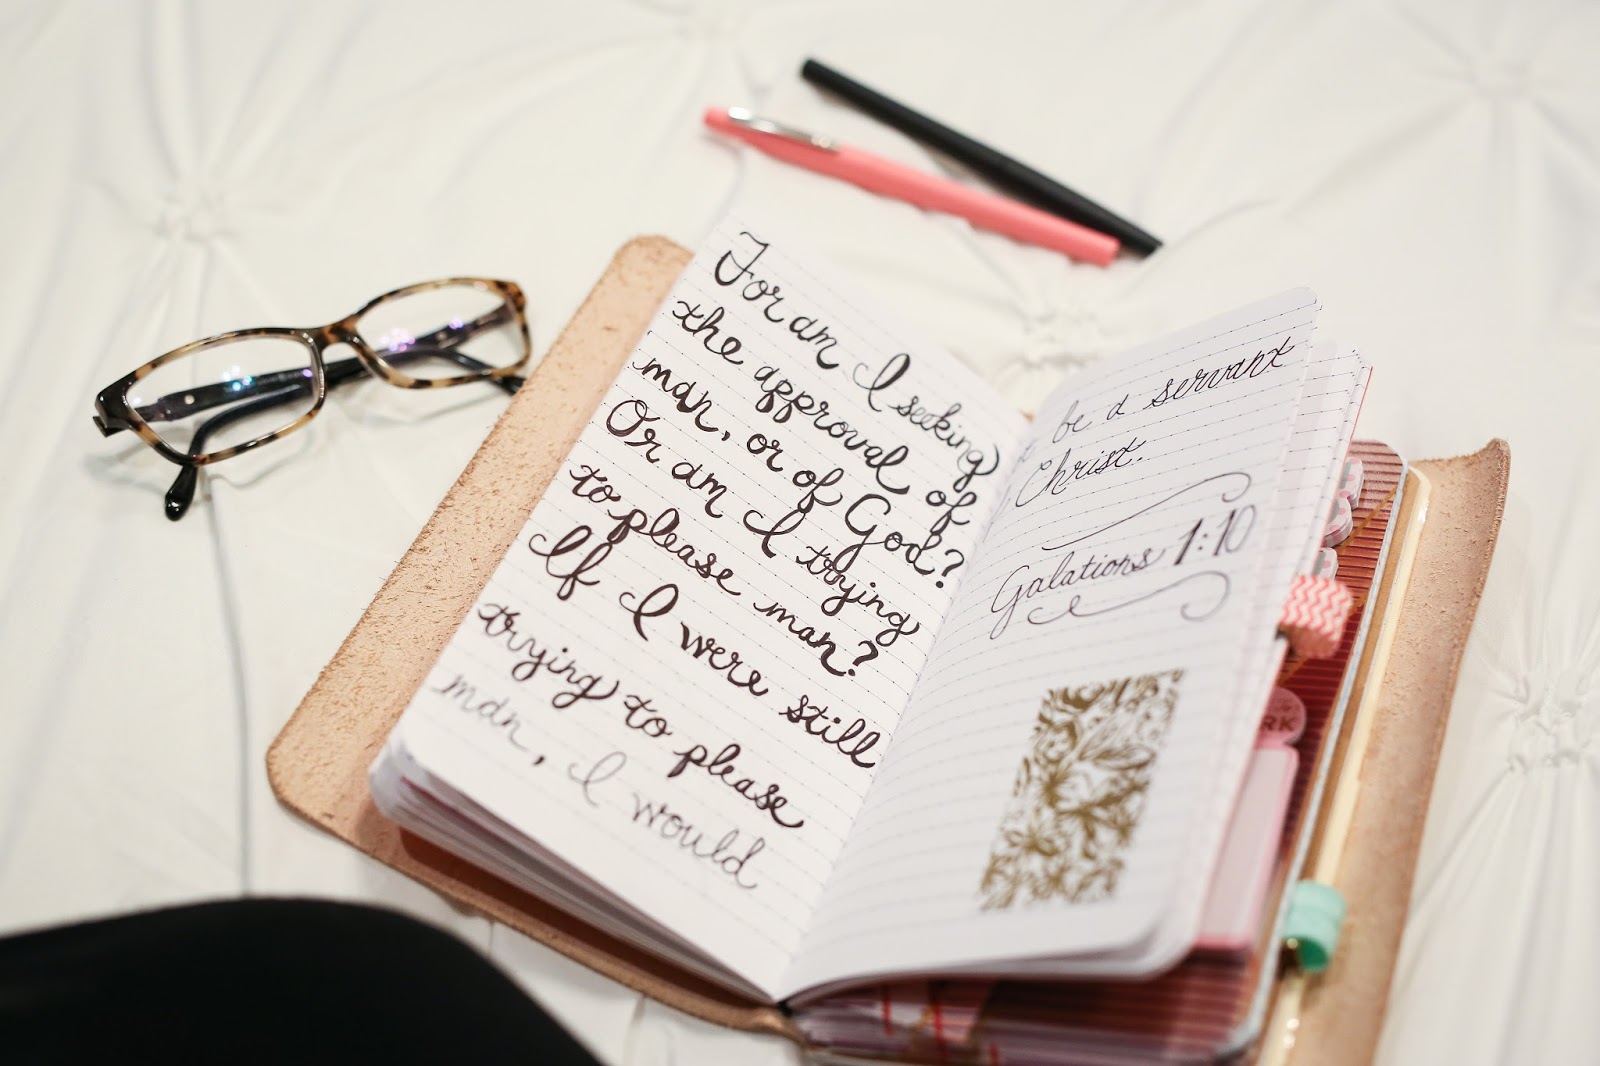 For am I seeking
the approval of
man, or of God?
Or am I trying
to please man?
If I were still
trying to please
man, I would
be a servant
Christ.
Galations 1:10
RK